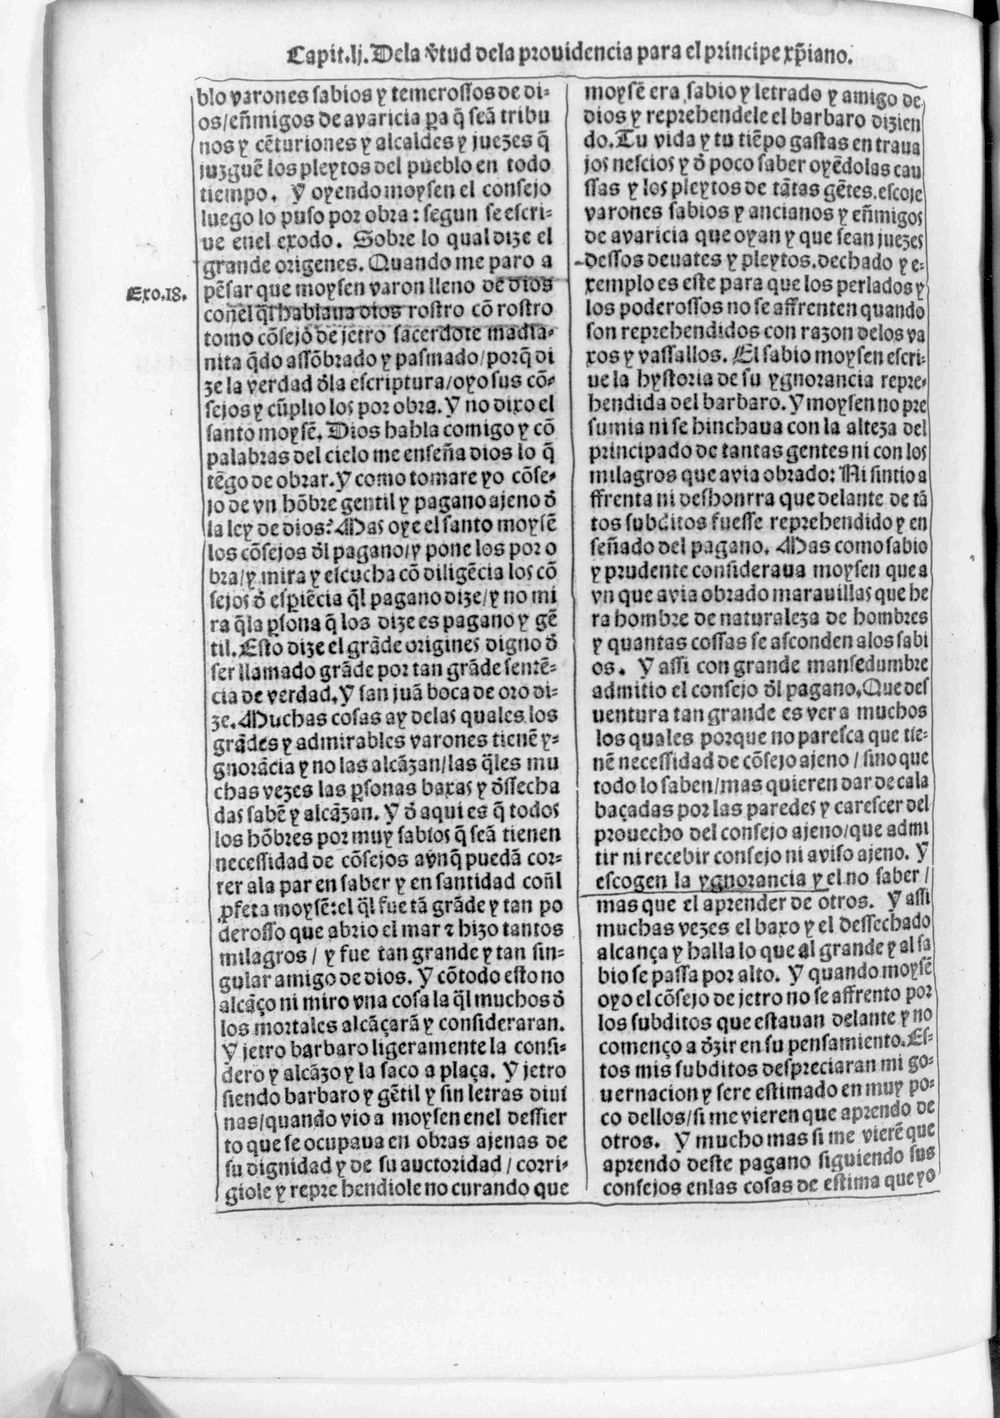 Capit.lj. Dela v̄tud dela prouidencia para el principe xp̄iano.
blo varones sabios y temerossos de di-
os/en̄migos de avaricia p̱a q̄ seā tribu
nos y cēturiones y alcaldes y juezes q̄
juzguē los pleytos del pueblo en todo
tiempo. Y oyendo moysen el consejo
luego lo puso por obra: segun se escri-
ue enel exodo. Sobre lo qual dize el
grande origenes. Quando me paro a
Exo.18.
pēsar que moysen varon lleno de dios
con̄el q̄l hablaua dios rostro cō rostro
tomo cōsejo de jetro sacerdote madia-
nita q̄do assōbrado y pasmado/porq̄ di
ze la verdad d̄la escriptura/oyo sus cō-
sejos y cūplio los por obra. Y no dixo el
santo moysē. Dios habla comigo y cō
palabras del cielo me enseña dios lo q̄
tēgo de obrar. Y como tomare yo cōse-
jo de vn hōbre gentil y pagano ajeno d̄
la ley de dios? Mas oye el santo moysē
los cōsejos d̄l pagano/y pone los por o
bra/y mira y escucha cō diligēcia los cō
sejos d̄ esp̱iēcia q̄l pagano dize/y no mi
ra q̄la p̱sona q̄ los dize es pagano y gē
til. Esto dize el grāde origines digno d̄
ser llamado grāde por tan grāde sentē-
cia de verdad. Y san juā boca de oro di-
ze. Muchas cosas ay delas quales los
grādes y admirables varones tienē y-
gnorācia y no las alcāzan/las q̄les mu
chas vezes las p̱sonas baxas y d̄ssecha
das sabē y alcāzan. Y d̄ aqui es q̄ todos
los hōbres por muy sabios q̄ seā tienen
necessidad de cōsejos avnq̄ puedā cor-
rer ala par en saber y en santidad con̄l
p̱feta moysē: el q̄l fue tā grāde y tan po
derosso que abrio el mar ⁊ hizo tantos
milagros / y fue tan grande y tan sin-
gular amigo de dios. Y cōtodo esto no
alcāço ni miro vna cosa la q̄l muchos d̄
los mortales alcāçarā y consideraran.
Y jetro barbaro ligeramente la consi-
dero y alcāzo y la saco a plaça. Y jetro
siendo barbaro y gētil y sin letras diui
nas/quando vio a moysen enel dessier
to que se ocupaua en obras ajenas de
su dignidad y de su auctoridad / corri-
giole y reprehendiole no curando que
moysē era sabio y letrado y amigo de
dios y reprehendele el barbaro dizien
do. Tu vida y tu tiēpo gastas en traua
jos nescios y d̄ poco saber oyēdolas cau
ssas y los pleytos de tātas gētes. escoje
varones sabios y ancianos y en̄migos
de avaricia que oyan y que sean juezes
dessos devates y pleytos. dechado y e-
xemplo es este para que los perlados y
los poderossos no se affrenten quando
son reprehendidos con razon delos va
xos y vassallos. El sabio moysen escri-
ue la hystoria de su ygnorancia repre-
hendida del barbaro. Y moysen no pre
sumia ni se hinchaua con la alteza del
principado de tantas gentes ni con los
milagros que avia obrado: Ni sintio a
ffrenta ni deshonrra que delante de tā
tos subditos fuesse reprehendido y en
señado del pagano. Mas como sabio
y prudente consideraua moysen que a
vn que avia obrado marauillas que he
ra hombre de naturaleza de hombres
y quantas cossas se asconden alos sabi
os. Y assi con grande mansedumbre
admitio el consejo d̄l pagano. Que des
uentura tan grande es ver a muchos
los quales porque no paresca que tie-
nē necessidad de cōsejo ajeno / sino que
todo lo saben/mas quieren dar de cala
baçadas por las paredes y carescer del
prouecho del consejo ajeno/que admi
tir ni recebir consejo ni aviso ajeno. Y
escogen la ygnorancia y el no saber /
mas que el aprender de otros. Y assi
muchas vezes el baxo y el dessechado
alcança y halla lo que al grande y al sa
bio se passa por alto. Y quando moysē
oyo el cōsejo de jetro no se affrento por
los subditos que estauan delante y no
començo a d̄zir en su pensamiento. Es-
tos mis subditos despreciaran mi go-
uernacion y sere estimado en muy po-
co dellos/si me vieren que aprendo de
otros. Y mucho mas si me vierē que
aprendo deste pagano siguiendo sus
consejos enlas cosas de estima que yo